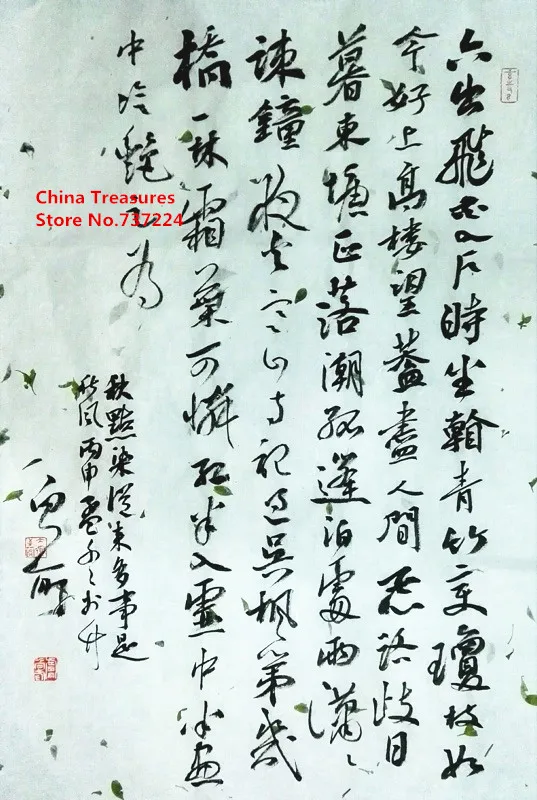 六出飛花入戶時坐看青竹變瓊枝如
今好上高樓望蓋盡人間惡路歧日
暮東塘正落潮孤篷泊處雨瀟々
疎鐘夜火寒山寺記過吳楓第幾
橋一林霜葉可憐紅半入虛中半畫
中冷艷足為
秋點染從來多事是
秋風丙申
China Treasures
Store No.737224